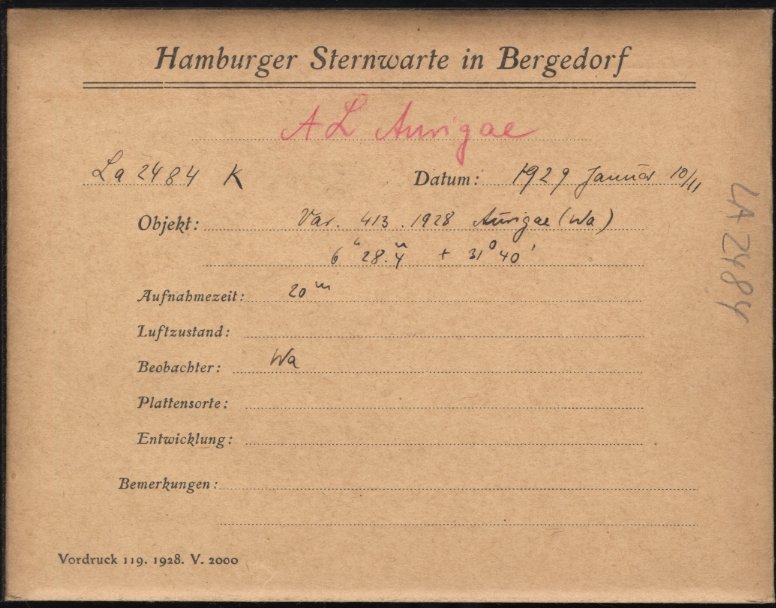 Hamburger Sternwarte in Bergedorf
AL Aurigae
La 2484 K Datum: 1929 Januar 10/11
Objekt: Var. 413.1928 Aurigae (Wa)
6ʰ 28.ᵐ4 + 31° 40'
Aufnahmezeit: 20ᵐ
Luftzustand:
Beobachter: Wa
Plattensorte:
Entwicklung:
Bemerkungen:
Vordruck 119. 1928. V. 2000
LA 2484